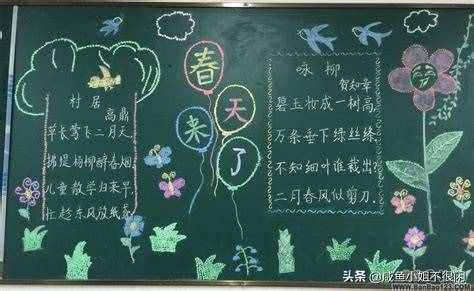 村居
高鼎
草长莺飞二月天
拂堤杨柳醉春烟
儿童散学归来早
忙趁东风放纸鸢
春
天
来
了
咏柳
贺知章
碧玉妆成一树高,
万条垂下绿丝绦.
不知细叶谁裁出?
二月春风似剪刀.
头条 @咸鱼小姐不很困
www.BanBao123.com